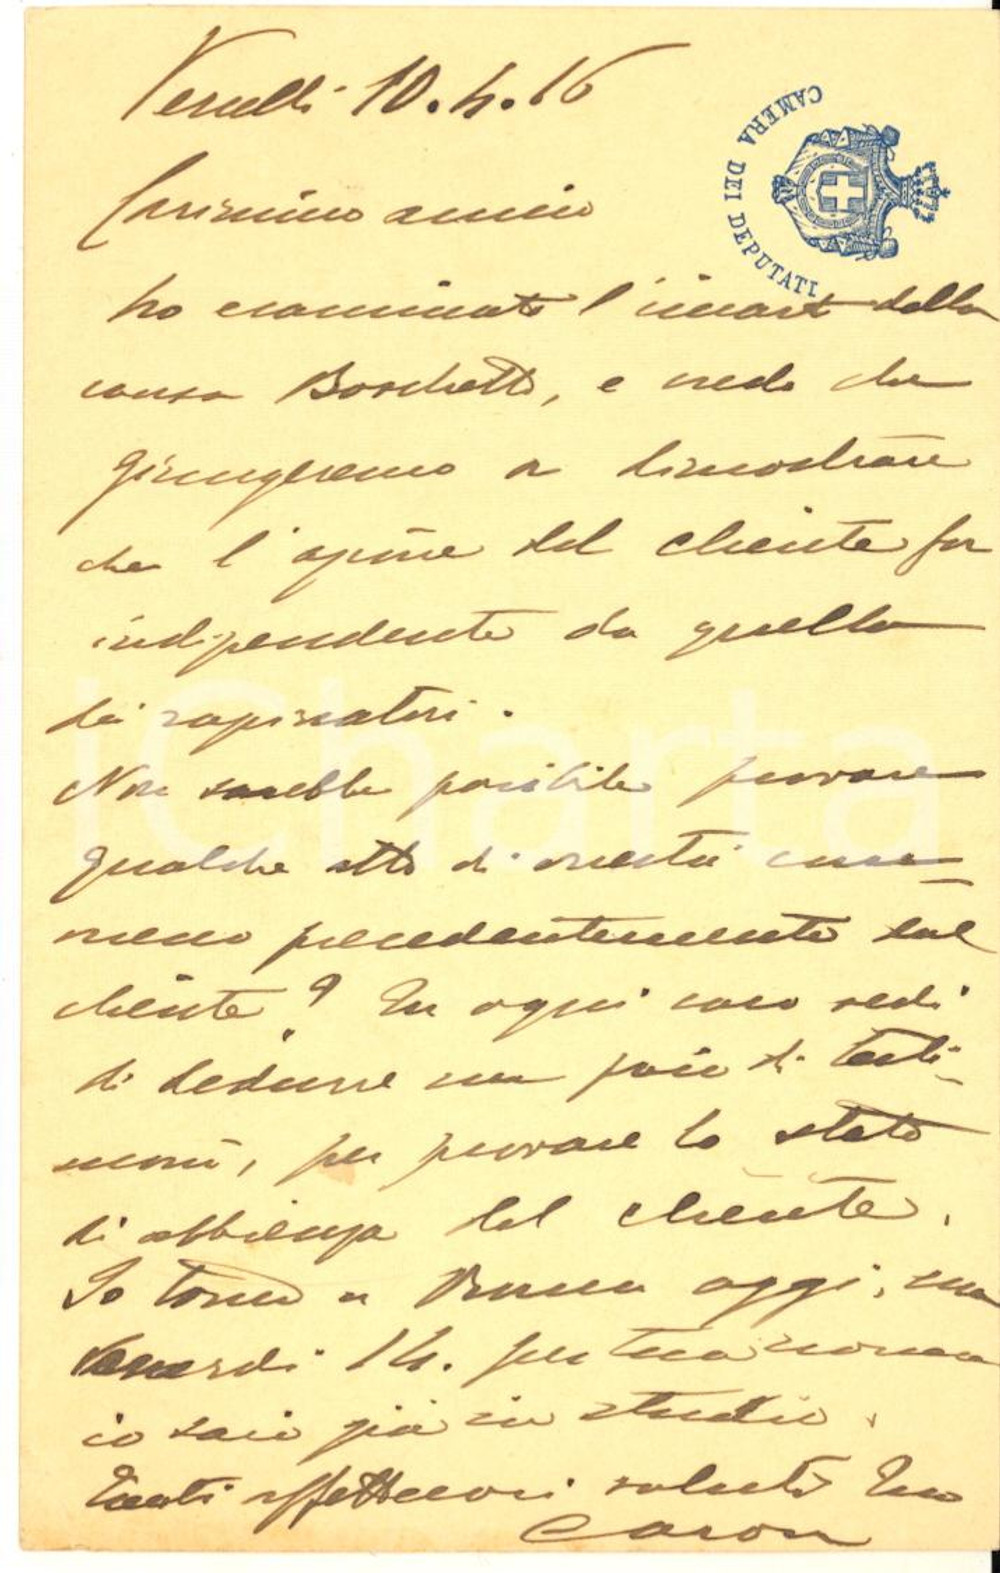 Vercelli 10.4.16
CAMERA DEI DEPUTATI
Carissimo amico
ho esaminato l'incart della
causa Boschetti, e vedo che
giungeremo a dimostrare
che l'opine del cliente fu
indipendente da quella
dei rapinatori.
Non sarebbe possibile provare
qualche atto di onestà com-
messo precedentemente dal
cliente? In ogni caso vedi
di dedurre un paio di testi-
moni, per provare lo stato
di abbienza del cliente.
Io torno a Roma oggi, ma
Venerdi 14. per tua norma
io sarò già in studio.
Tanti affettuosi saluti Tuo
Caron
iCharta